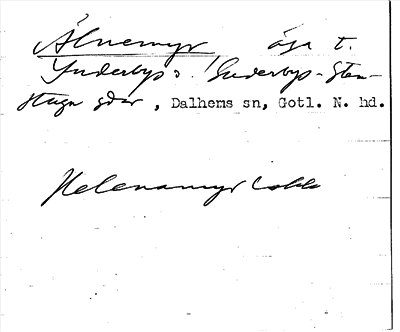 Älnemyr äga t.
Ynderbys / Gnderbys-Sten-
stugu gdar, Dalhems sn, Gotl. N. hd.
Helenamyr